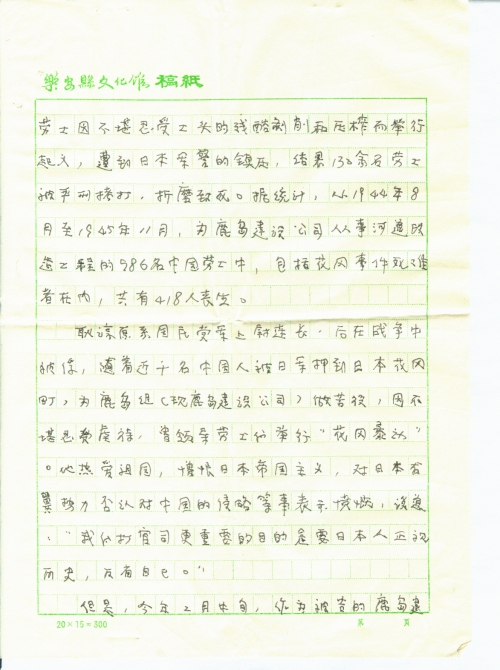 樂安縣文化馆 稿紙
劳工因不堪忍受工头的残酷剥削和压榨而举行
起义，遭到日本军警的镇压，结果130余名劳工
被严刑拷打，折磨致死。据统计，从1944年8
月至1945年11月，为鹿岛建设公司从事河道改
造工程的986名中国劳工中，包括花冈事件死难
者在内，共有418人丧生。
耿谆原系国民党军上尉连长，后在战争中
被俘，随着近千名中国人被日军押到日本花冈
町，为鹿岛组（现鹿岛建设公司）做苦役，因不
堪忍受虐待，曾领导劳工们举行"花冈暴动"
。他热爱祖国，憎恨日本帝国主义，对日本右
翼势力否认对中国的侵略等事表示愤慨，说道
："我们打官司更重要的目的是要日本人正视
历史，反省自己。"
但是，今年2月中旬，作为被告的鹿岛建
20×15=300
第 页